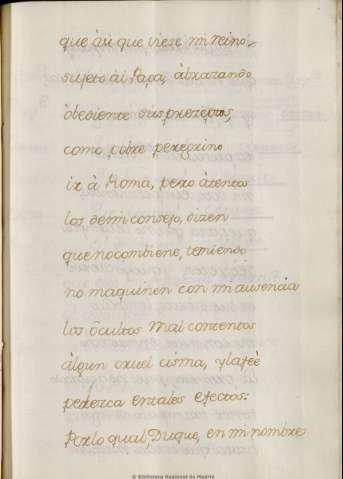 que àu que viese mi reino
sujeto àl Papa, àbrazando
òbediente sus preceptos,
como pobre peregrino
ir à Roma, pero àtentos
los de mi consejo, dizen
que no combiene, temiendo
no maquinen con mi ausencia
los òcultos mal contentos
àlgun cruel cisma, y la feè
perezca en tales efectos:
Por lo qual, Duque, en mi nombre
© Biblioteca Nacional de Madrid